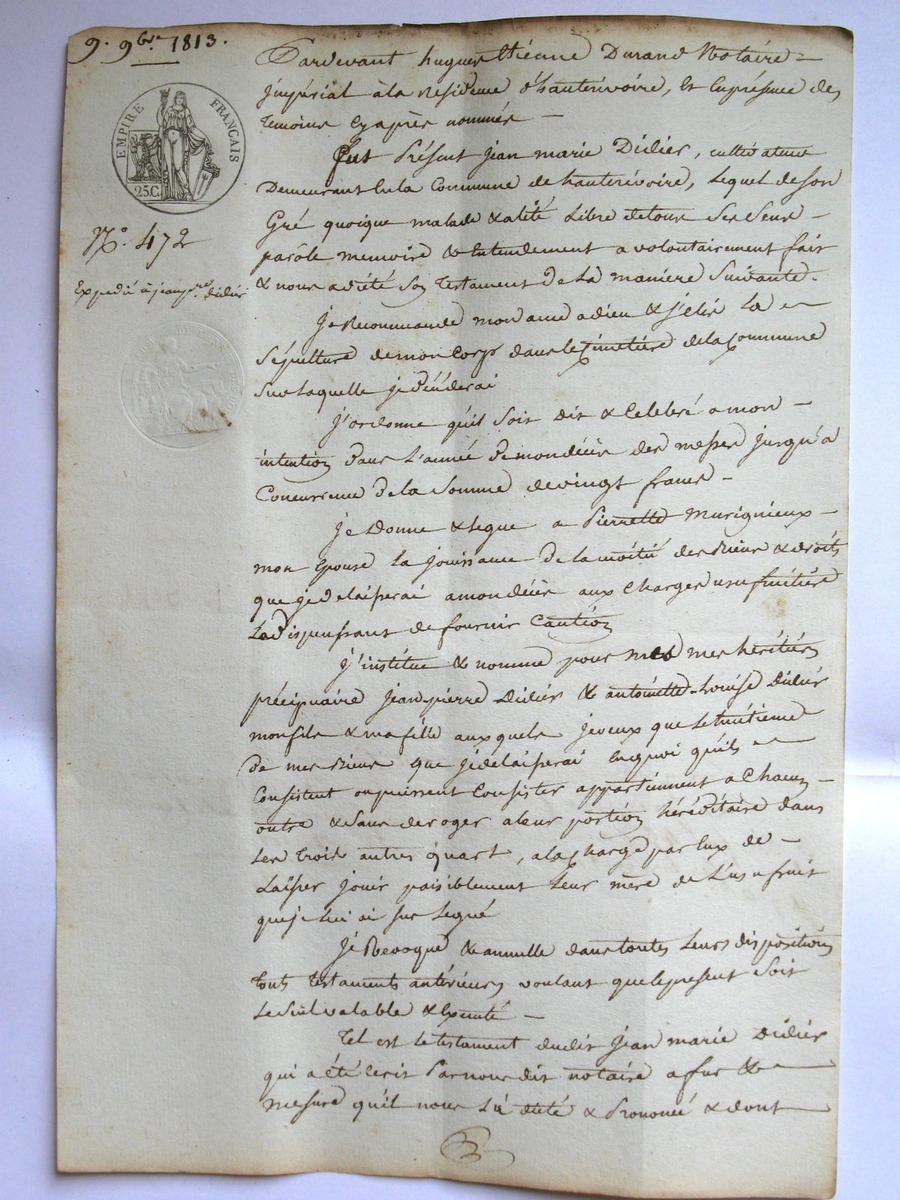 9. 9bre 1813.
EMPIRE FRANÇAIS
25.C.
No. 472
Expedié à jean pre didier
Pardevant hugues Etienne Durand Notaire
jmpérial à la Residence d'hauterivoire, Et En présence des
temoins Cy après nommés
fut Présent jean marie Didier, cultivateur
Demeurant En la Commune de hauterivoire, Lequel de son
Gré quoique malade & alité Libre de tous Ses Sens
parole memoire & Entendement a volontairement fait
& nous a dicté Son Testament De La maniere Suivante.
Je Recommande mon ame a dieu & j'élis La
Sépulture de mon Corps dans le Cimetière de la Commune
Sur Laquelle je déciderai
J'ordonne qu'il Soit Dit & Celebré a mon
intention Dans L'année De mon décès des messes jusqu'a
Concurrence de la Somme de vingt francs
Je Donne & legue a Pierrette Murignieux
mon Epouse La jouissance De la moitié des Biens & droits
que je delaisserai a mon décès aux Charges usufruitière
La dispensant de fournir Caution
J'institue & nomme pour mes mes héritiers
précipuaire jean pierre Didier & antoinette Louise Didier
mon fils & ma fille auxquels je veux que
De mes Biens que je delaisserai En quoi qu'ils
Consistent ou puissent Consister appartiennent a Chacun
outre & Sans deroger a leur portion héréditaire dans
Les trois autres quart, a la Charge par Eux de
Laisser jouir paisiblement Leur mère de L'usufruit
que je Lui ai Sus Legué
Je Revoque & annulle dans toutes Leurs dispositions
tous testaments antérieurs voulant que le present Soit
Le Seul valable & Executé
Tel est le testament dudit Jean marie Didier
qui a été Ecrit Par nous dit notaire a fur &
mesure qu'il nous L'a dicté & Prononcé & dont